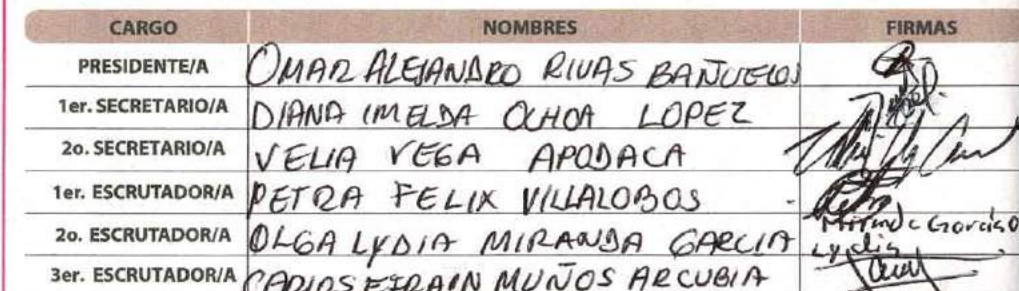 CARGO NOMBRES FIRMAS
PRESIDENTE/A OMAR ALEJANDRO RIVAS BAÑUELOS
1er. SECRETARIO/A DIANA IMELDA OCHOA LOPEZ
2o. SECRETARIO/A VELIA VEGA APODACA
1er. ESCRUTADOR/A PETRA FELIX VILLALOBOS
2o. ESCRUTADOR/A OLGA LYDIA MIRANDA GARCIA Miranda Garcia O Lydia
3er. ESCRUTADOR/A CARLOS EFRAIN MUÑOS ARCUBIA